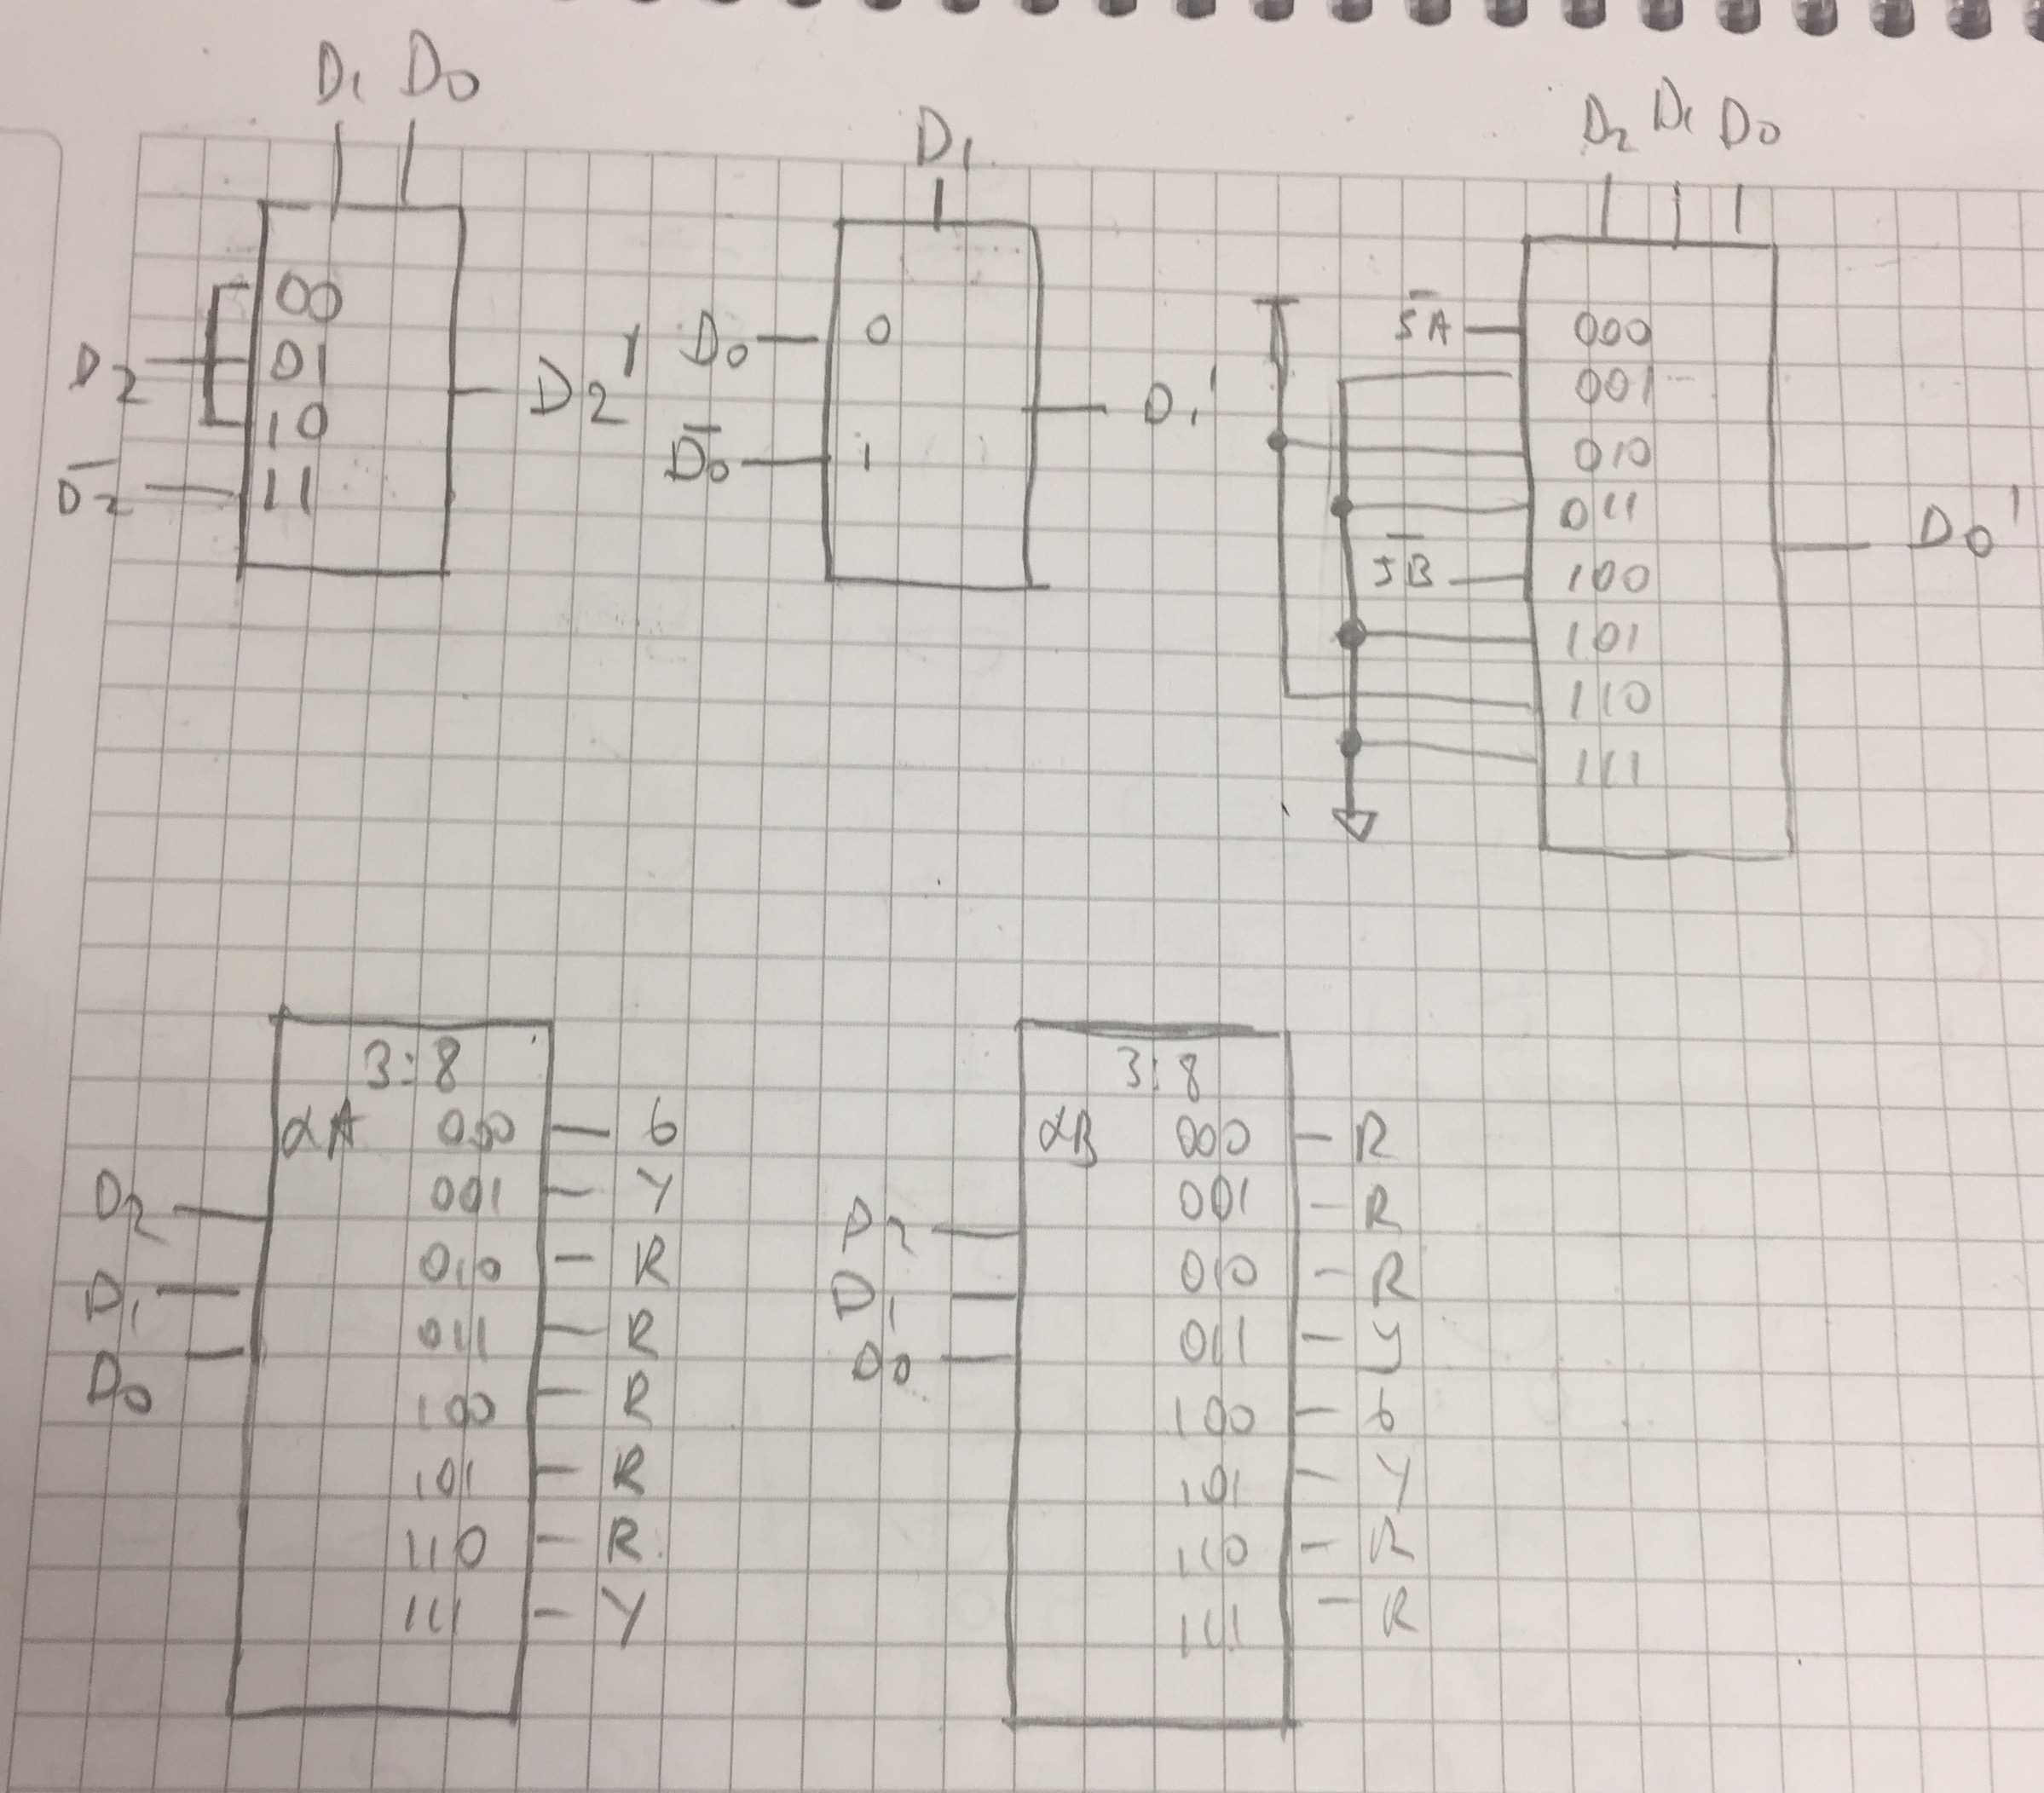 D₁ D₀
00
01
10
11
D₂
D̅₂
D₂'
D₁
D₀ 0
D̅₀ 1
D₁'
D₂ D₁ D₀
S̅A̅ 000
001
010
011
S̅B̅ 100
101
110
111
D₀'
3:8
αA 000 G
001 Y
010 R
011 R
100 R
101 R
110 R
111 Y
D₂
D₁
D₀
3:8
αB 000 R
001 R
010 R
011 Y
100 G
101 Y
110 R
111 R
D₂
D₁
D₀